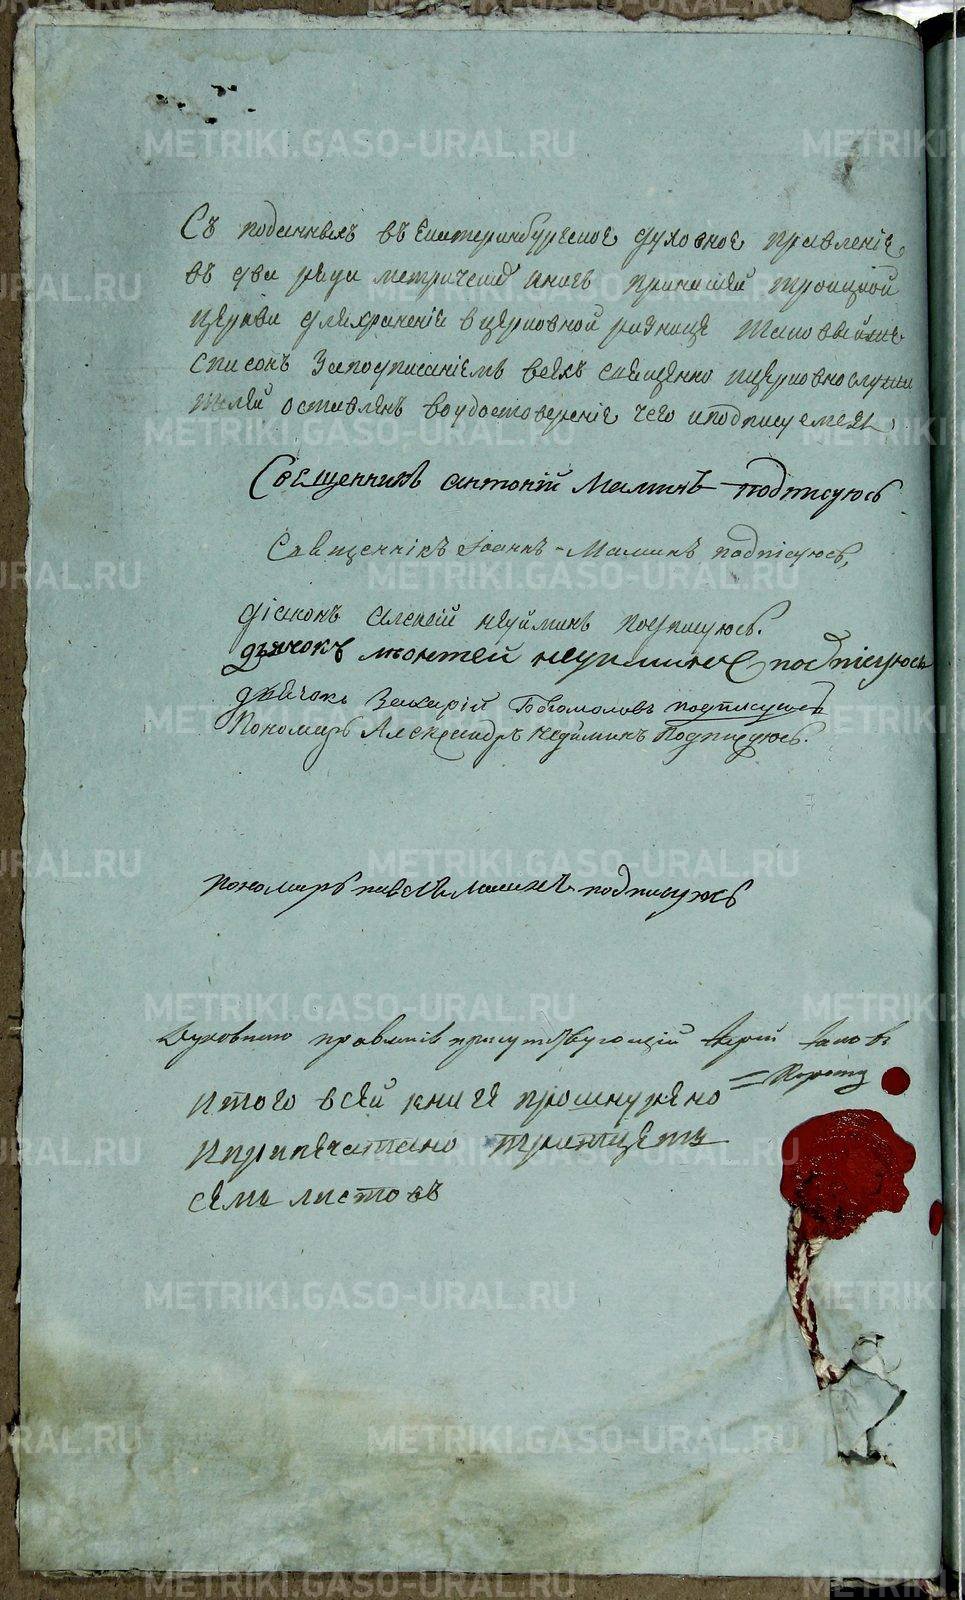 Съ поданныхъ въ Екатеринбургское духовное правленіе
въ два ряда метрическ книгъ принашей троицкой
церкви дляхраненія вцерковной ризнице таковыйже
списокъ Заподписаніемъ всехъ священно ицерковнослужи
телей оставленъ воудостовереніе чего иподписуемся
Священникъ антоній Маминъ подписуюсь
Священнікъ Іоаннъ Маминъ подпісуюсь,
діаконъ алексій неуйминъ подписуюсь.
дьячокъ неуиминъ подпісуюсь
дьячокъ Захарій Богомоловъ подписуюсь
Пономарь Александръ неуйминъ Подписуюсь.
пономарь павелъ маминъ подписуюсь
Духовнаго правленія присутствующій Іерей Іаковъ
итого всей книге прошнурено
иприпечатано тритцеть
семь листовъ
METRIKI.GASO-URAL.RU